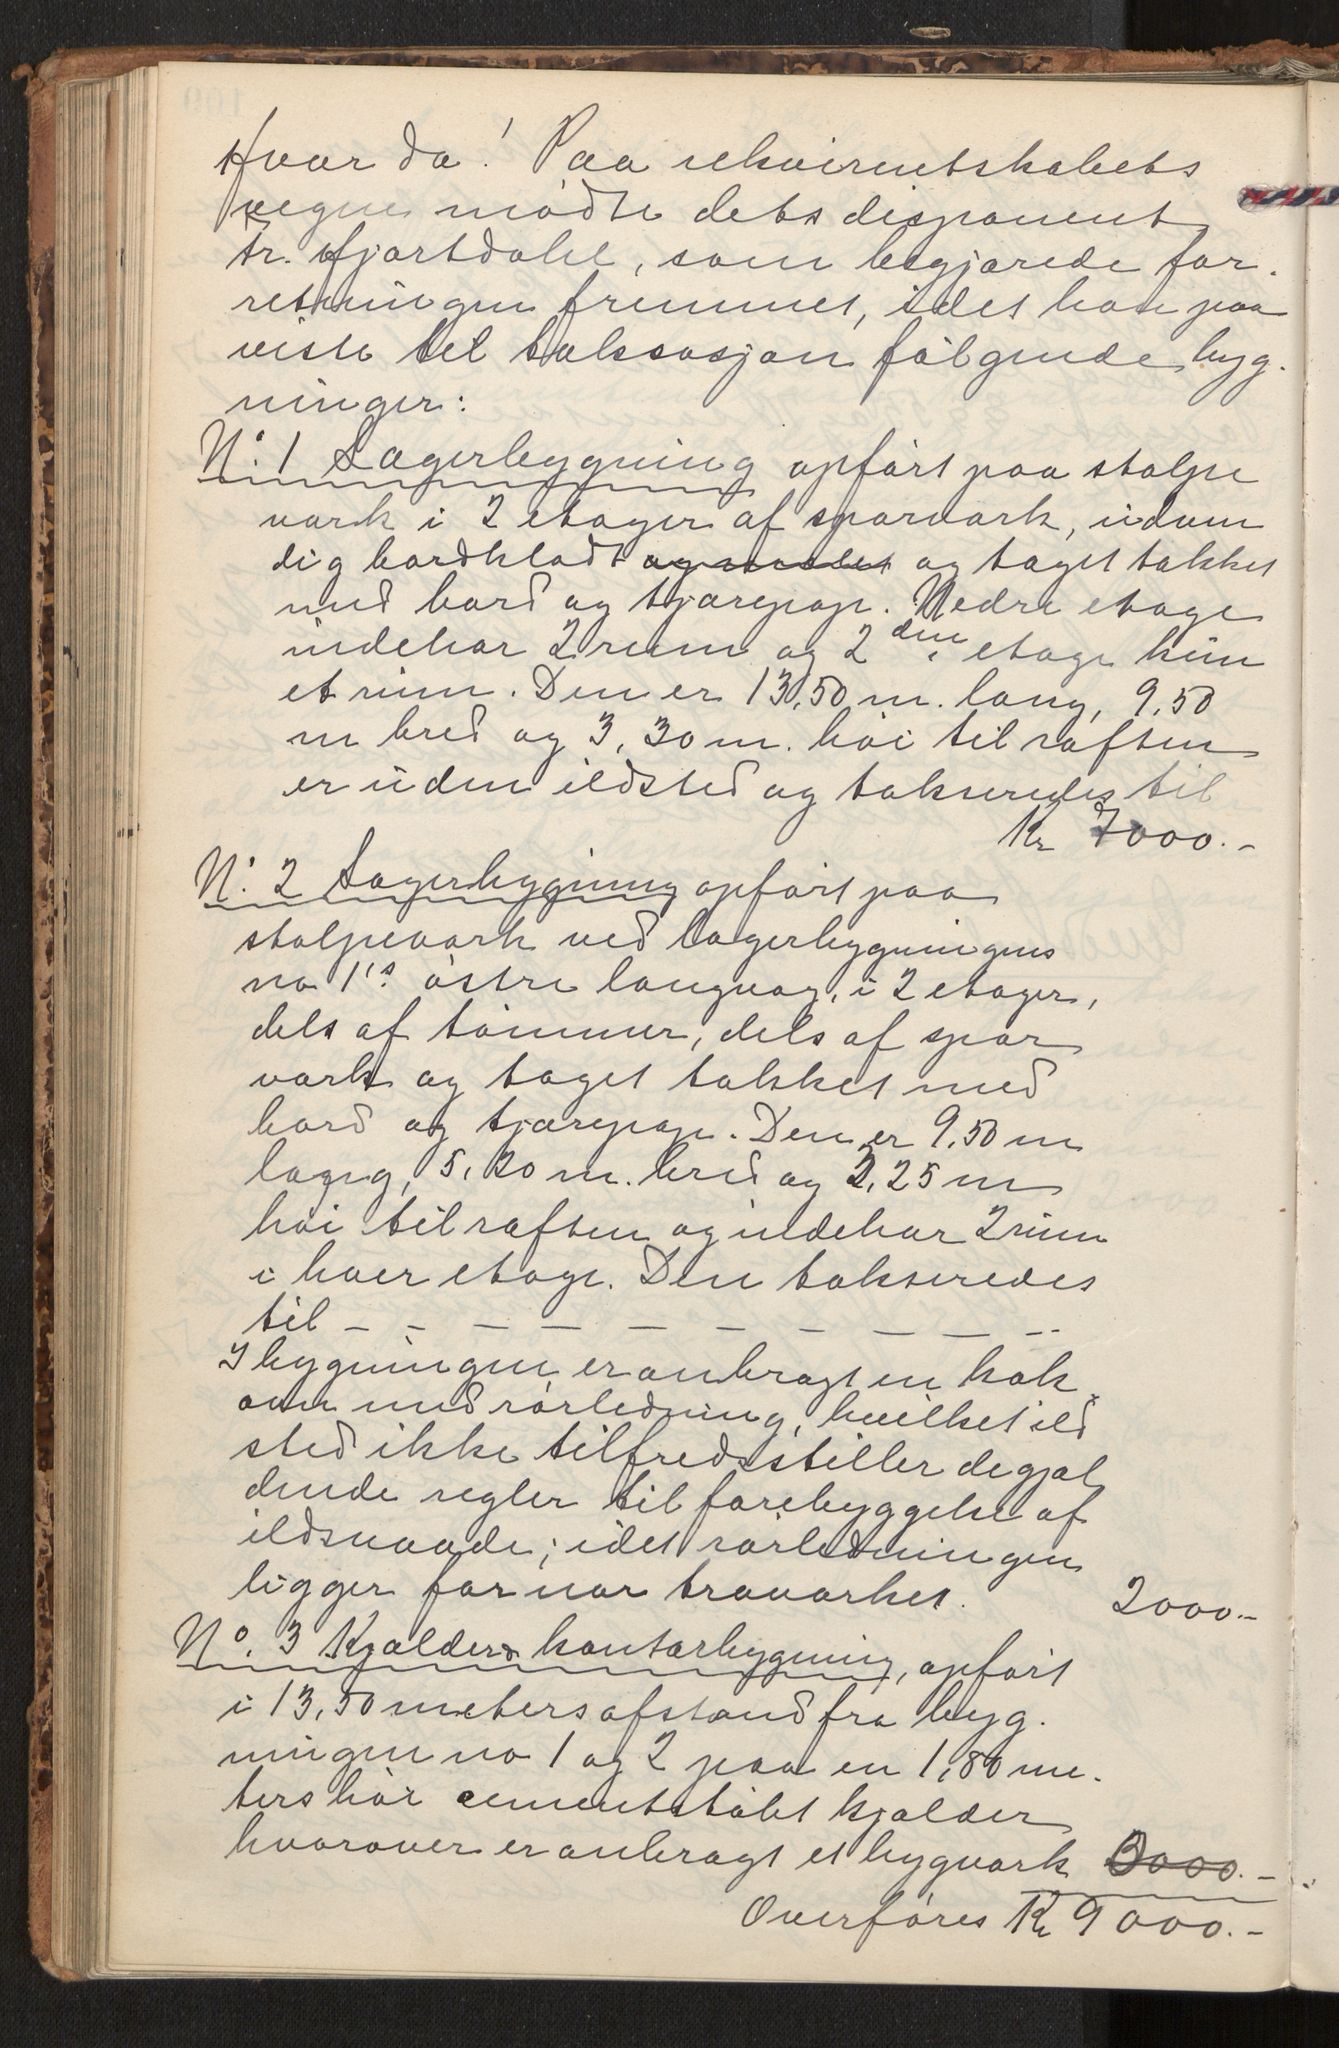 Hvor da! Paa rekvirentskabets
vegne mødte dets disponent
Fr. Hjortdahl, som begjærede for-
retningen fremmet, idet han paa
viste til taksasjon følgende byg-
ninger:
No. 1 Lagerbygning opført paa stolpe
værk i 2 etager af sparværk, udven
dig bordklædt og malet og taget tækket
med bord og tjærepap. Nedre etage
indehar 2 rum og 2den etage kun
et rum. Den er 13,50 m. lang, 9,50
m bred og 3,30 m. høi til raften
er uden ildsted og takseredes til
Kr 7000.-
No. 2 Lagerbygning opført paa
stolpeværk ved lagerbygningens
no 1's østre langvæg, i 2 etager,
dels af tømmer, dels af spar
værk og taget tækket med
bord og tjærepap. Den er 9,50 m
lang, 5,20 m. bred og 2,25 m
høi til raften og indehar 2 rum
i hver etage. Den takseredes
til - - - - - - - - - -
I bygningen er anbragt en kok
ovn med rørledning, hvilket ild
sted ikke tilfredsstiller de gjæl
dende regler til forebyggelse af
ildsvaade; idet rørledningen
ligger for nær træværket. 2000.-
No. 3 Kjælder & kontorbygning, opført
i 13,50 meters afstand fra byg-
ningen no 1 og 2 paa en 1,80 me-
ters høi cementstøbt kjælder
hvorover er anbragt et bygværk 5000.-
Overføres Kr 9000.-